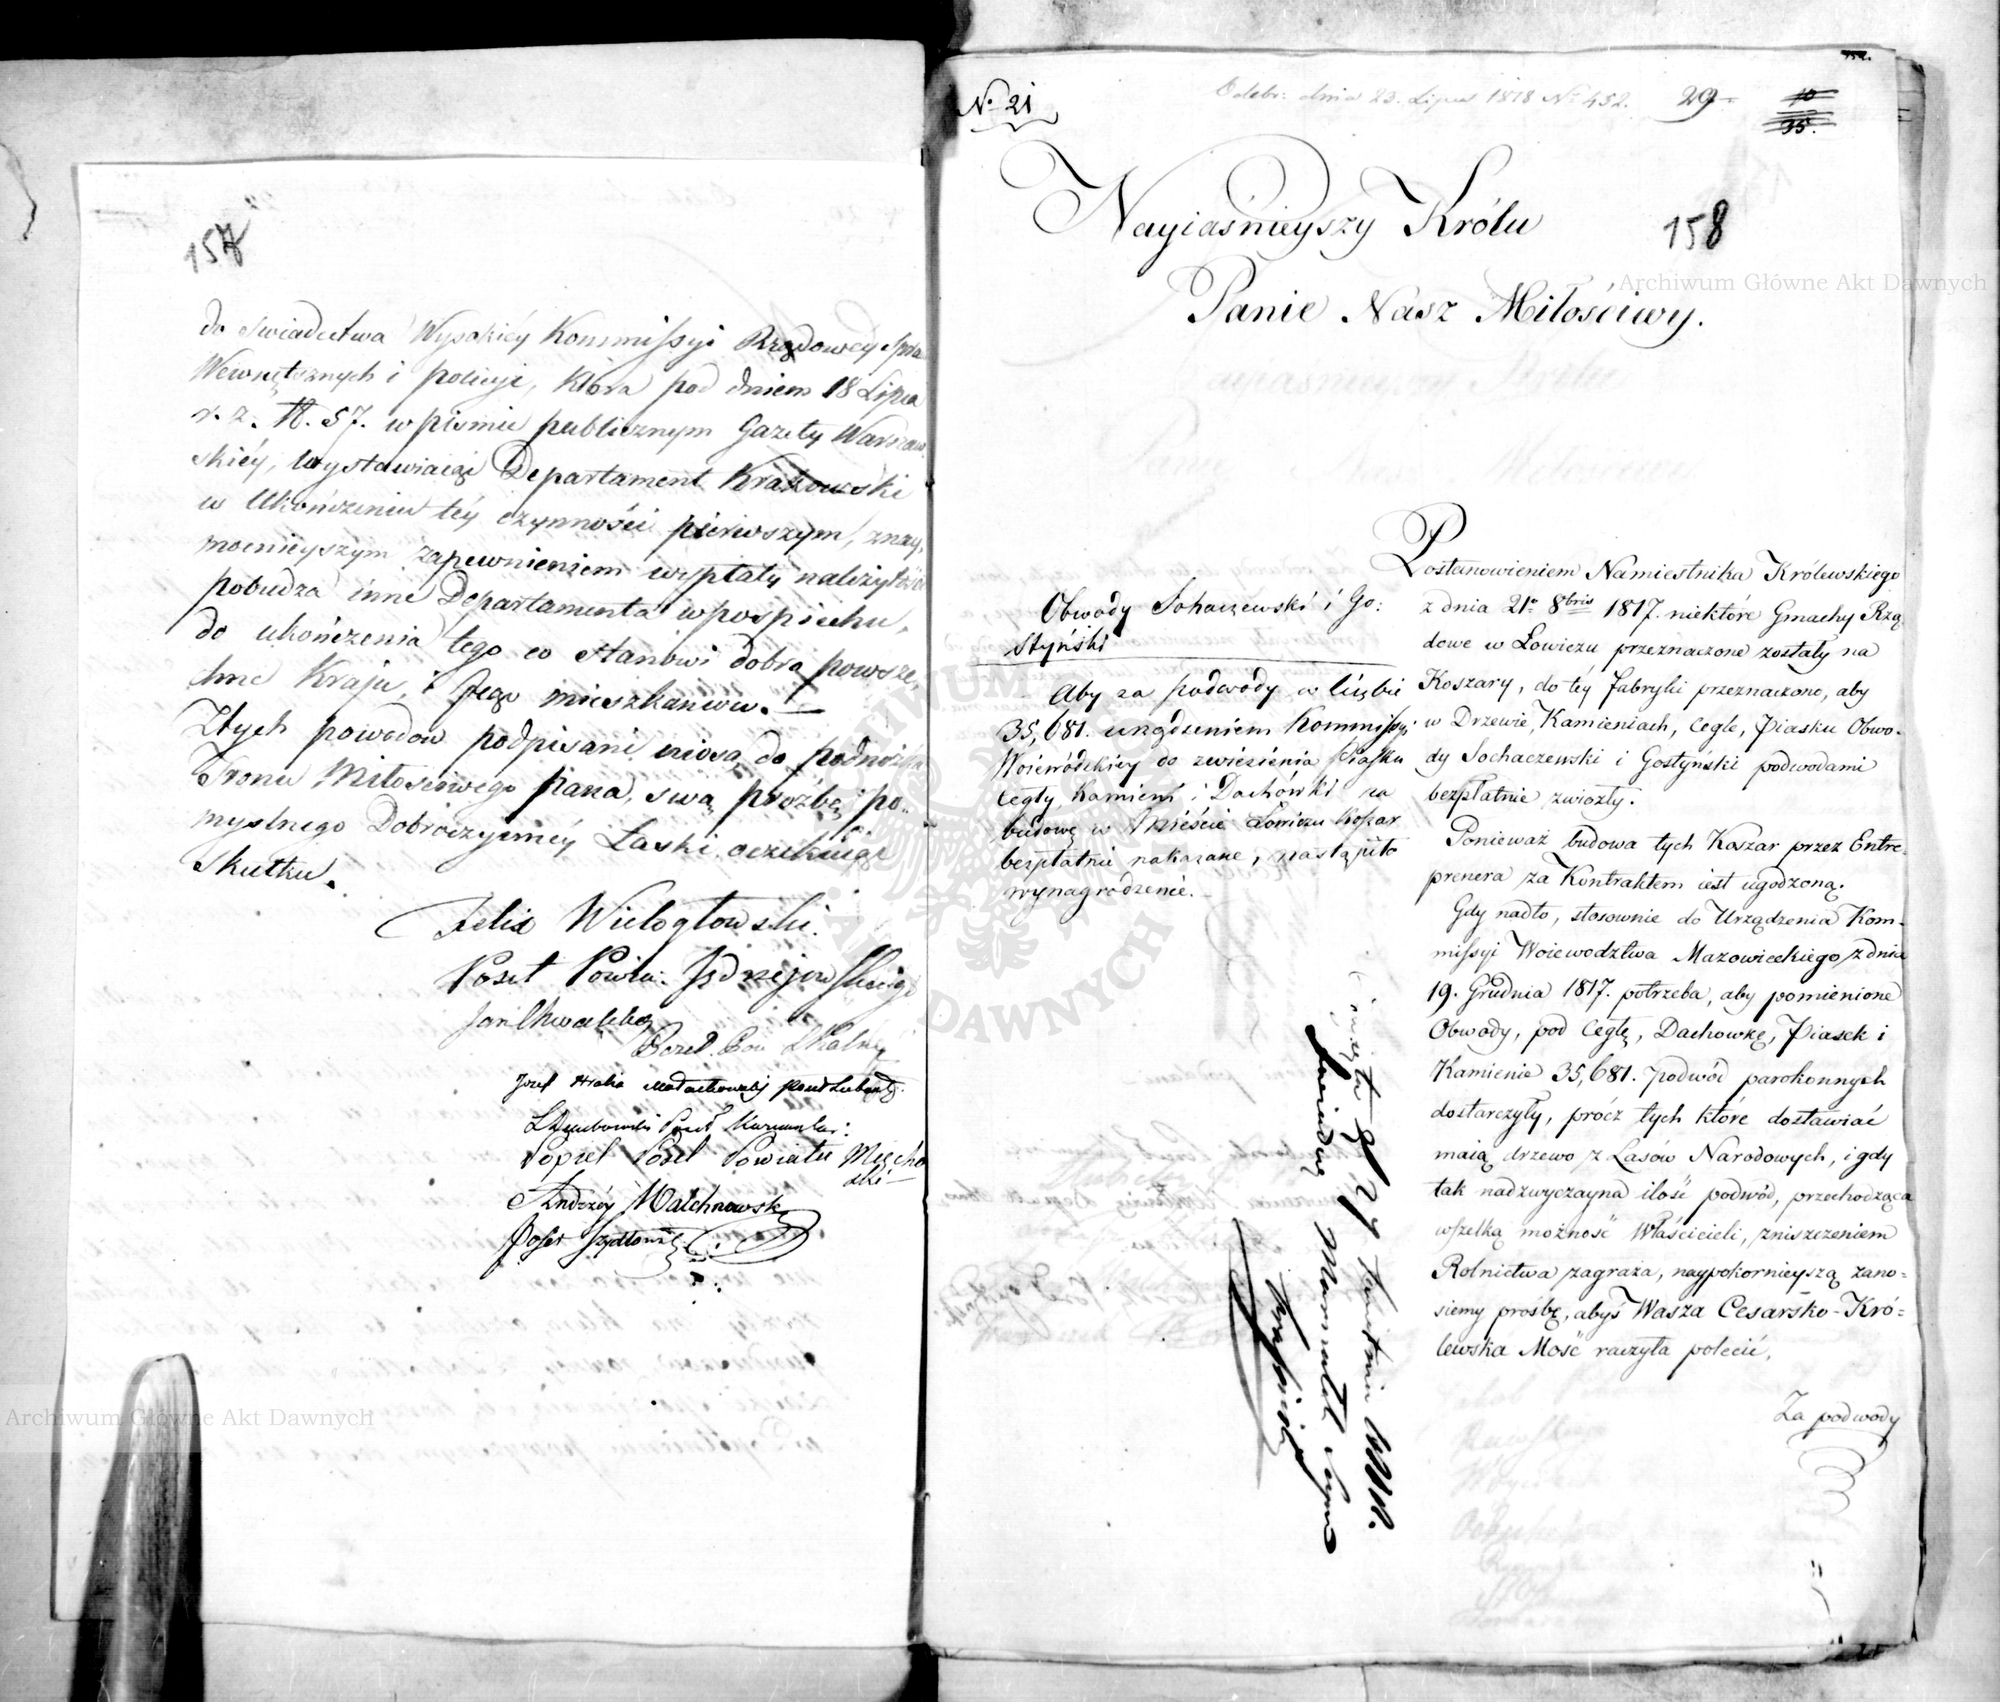 157
do Swiadectwa Wysokiéy Kommissyi Rządowéy Spra
Wewnętsznych i policyi, która pod dniem 18 Lipca
r. z. N. 57. w piśmie publicznym Gazety Warszaw
skiéy, wystawiaiąc Departament Krakowski
w Ukończeniu téy czynności pierwszym, z nay
mocnieyszym zapewnieniem wypłaty należytości
pobudza inne Departamenta w pospiechu,
do ukończenia tego co stanowi dobra powsze
chne Kraju, i Jego mieszkańcow.
Z tych powodow podpisani niosą do podnóża
Tronu Miłościwego Pana, swą prożbę, i po-
myslnego Dobroczynnéy Łaski oczekuiąc
Skutku.
Felix Wielogłowski.
Poseł Powia: Jędrzejowskiego
Jan Chwalibog
Poseł Pow Skalski
Jozef Hrabia Małachowski poseł
Dembowski Poseł
Popiel Poseł Powiatu Miecho
ski
Andrzéy Walchnowski
Poseł Szydłowski
No 21
Odebr: dnia 23. Lipca 1818 No 452. 29
10
35.
158
Nayiaśnieyszy Królu
Panie Nasz Miłościwy.
Obwody Sohaczewski i Go:
styński
Aby za podwody w liczbie
35,681. urządzeniem Kommissyi
Woiewódzkiey do zwiezienia Piasku
cegły, Kamieni i Dachówki na
budowę w Mieście Łowiczu Koszar
bezpłatnie nakazane, nastąpiło
wynagrodzenie.
Postanowieniem Namiestnika Królewskiego
z dnia 21o 8bris 1817. niektóre Gmachy Rzą
dowe w Łowiczu przeznaczone zostały na
Koszary, do téy fabryki przeznaczono, aby
w Drzewie, Kamieniach, cegle, Piasku Obwo-
dy Sochaczewski i Gostyński podwodami
bezpłatnie zwiozły.
Ponieważ budowa tych Koszar przez Entre-
prenera za Kontraktem iest ugodzoną.
Gdy nadto, stosownie do Urządzenia Kom-
missyi Woiewodztwa Mazowieckiego z dnia
19. Grudnia 1817. potrzeba, aby pomienione
Obwody, pod Cegłę, Dachowkę, Piasek i
Kamienie 35,681. Podwód parokonnych
dostarczyły, prócz tych które dostawiać
maią drzewo z Lasów Narodowych, i gdy
tak nadzwyczayna ilość podwód, przechodząca
wszelką możność Właścicieli, zniszczeniem
Rolnictwa zagraża, naypokornieyszą zano-
siemy prośbę, abyś Wasza Cesarsko-Kró-
lewska Mość raczyła polecić,
Za podwody